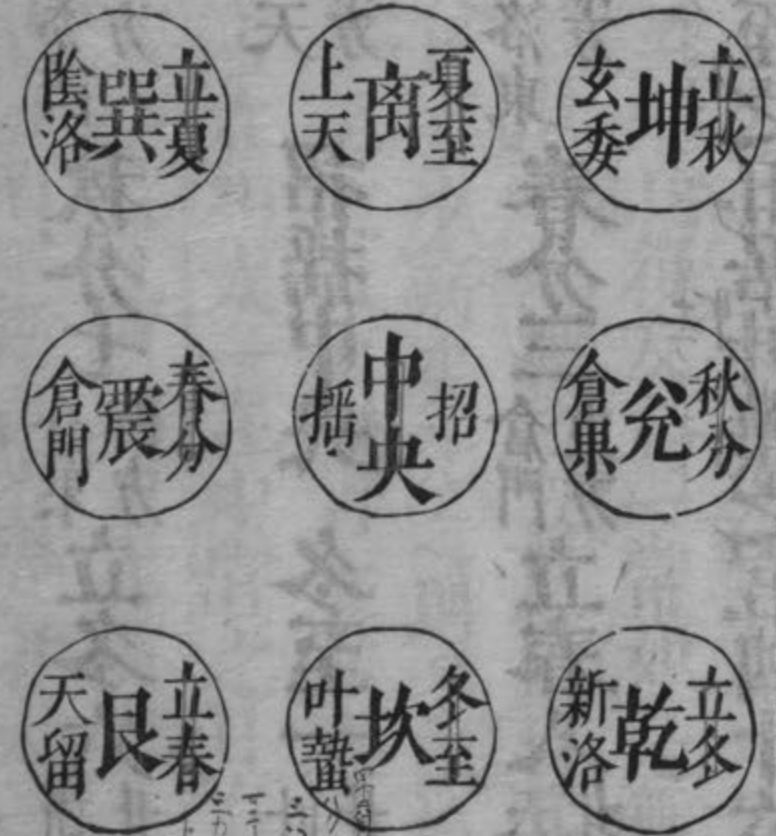 立秋
坤
玄委
夏至
离
上天
立夏
巽
陰洛
秋分
兊
倉果
招
中央
揺
春分
震
倉門
立冬
乾
新洛
冬至
坎
叶蟄
立春
艮
天留